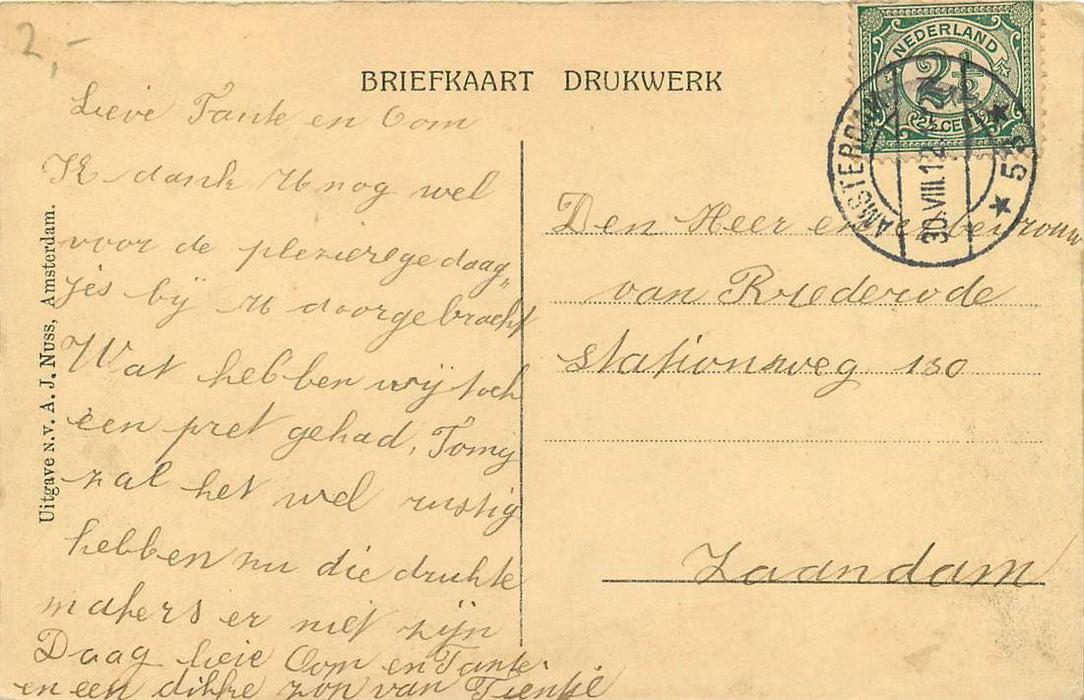 2,-
BRIEFKAART DRUKWERK
NEDERLAND
2½
(2½ CENT)
AMSTERDAM
30.VIII.12
5
Uitgave N.V. A. J. Nuss, Amsterdam.
Lieve Tante en Oom
Ik dank U nog wel
voor de plezierige daag„
jes bij U doorgebracht
Wat hebben wij toch
een pret gehad, Tomy
zal het wel rustig
hebben nu die drukte
makers er niet zijn
Daag lieve Oom en Tante
en een dikke zoen van Tientje
Den Heer en
van Brederode
Stationsweg 130
Zaandam